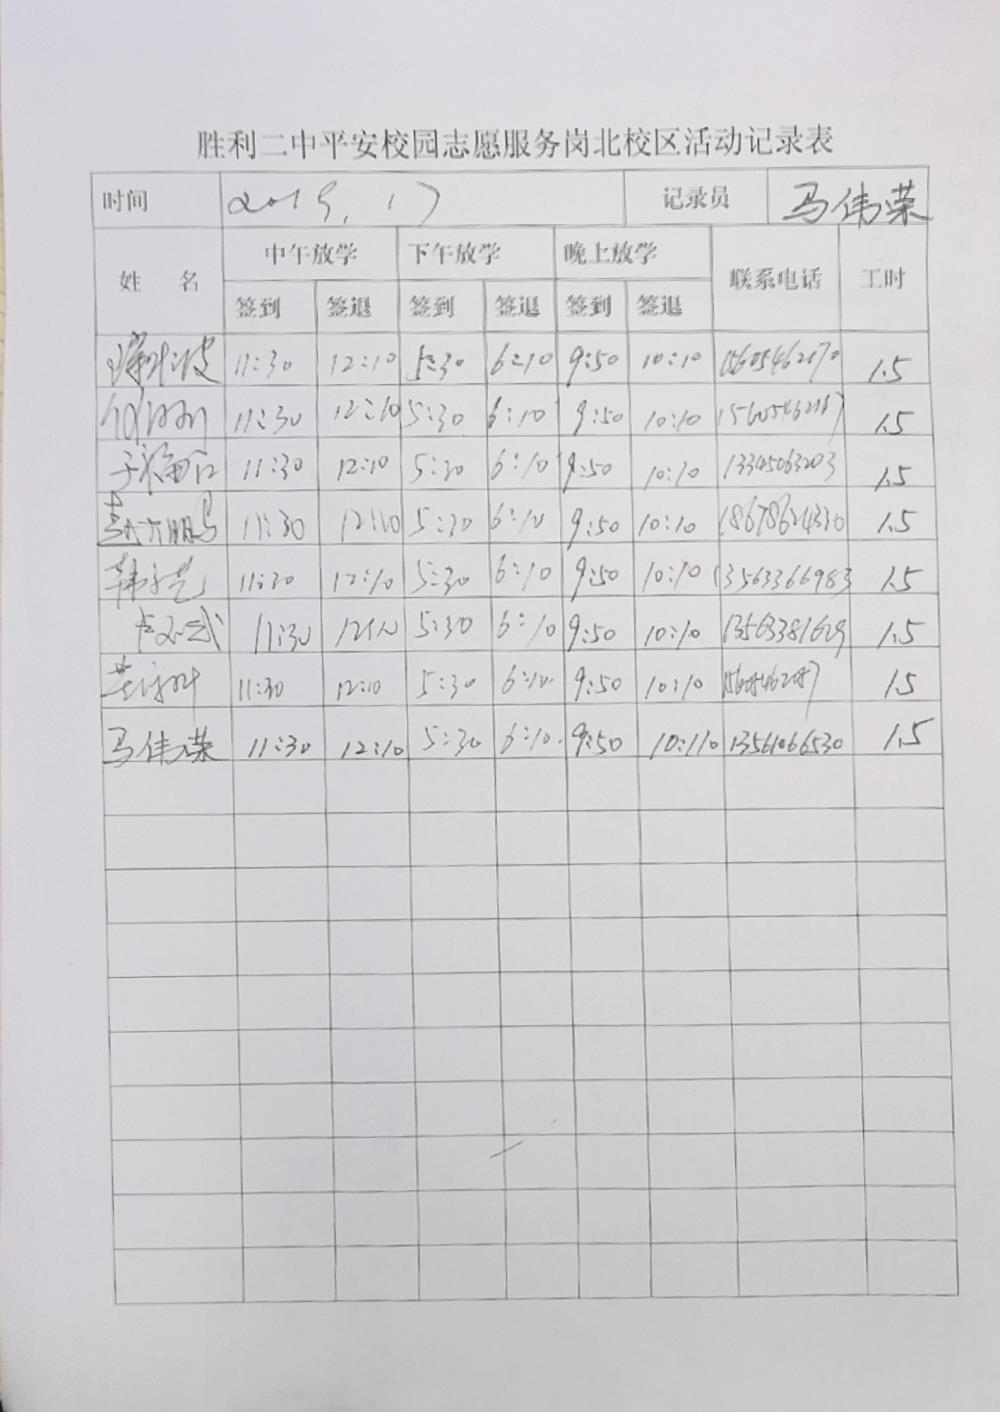 胜利二中平安校园志愿服务岗北校区活动记录表
时间 2019.17 记录员 马伟荣
姓 名 中午放学 下午放学 晚上放学 联系电话 工时
签到 签退 签到 签退 签到 签退
11:30 12:10 5:30 6:10 9:50 10:10 1.5
11:30 12:10 5:30 6:10 9:50 10:10 1.5
11:30 12:10 5:30 6:10 9:50 10:10 13345063203 1.5
11:30 12:10 5:30 6:10 9:50 10:10 18678624330 1.5
11:30 12:10 5:30 6:10 9:50 10:10 13563366983 1.5
11:30 12:10 5:30 6:10 9:50 10:10 13563381629 1.5
11:30 12:10 5:30 6:10 9:50 10:10 1.5
马伟荣 11:30 12:10 5:30 6:10 9:50 10:10 13561066530 1.5